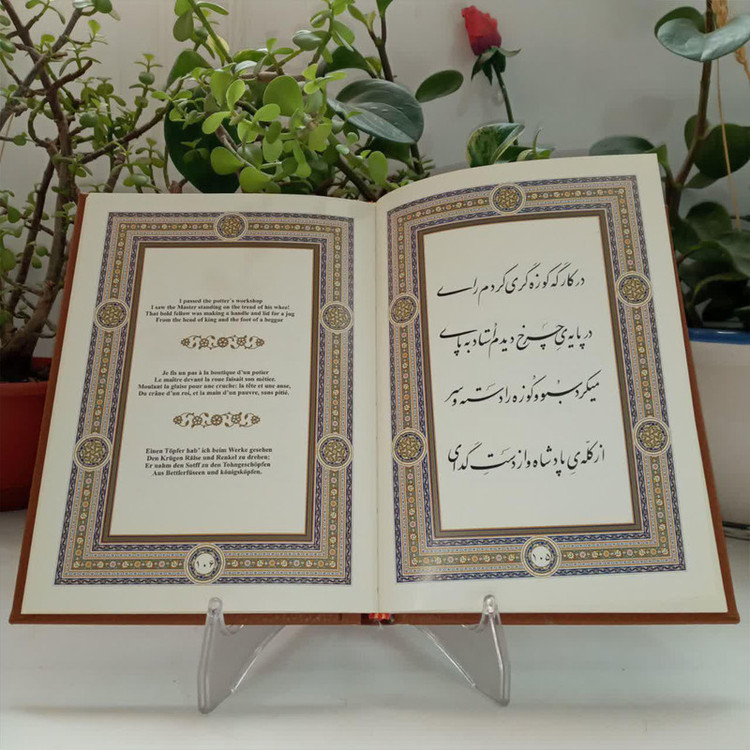 I passed the potter's workshop
I saw the Master standing on the tread of his wheel
That bold fellow was making a handle and lid for a jug
From the head of king and the foot of a beggar
Je fis un pas à la boutique d'un potier
Le maître devant la roue faisait son métier.
Moulant la glaise pour une cruche: la tête et une anse,
Du crâne d'un roi, et la main d'un pauvre, sans pitié.
Einen Töpfer hab' ich beim Werke gesehen
Den Krügen Hälse und Henkel zu drehen;
Er nahm den Sotff zu den Tohngeschöpfen
Aus Bettlerfüssen und königsköpfen.
۱۰۴
در کارگه کوزه گری کردم رای
در پایه‌ی چرخ دیدم استاد به پای
میکرد سبو و کوزه را دسته و سر
از کله‌ی پادشاه و از دست گدای
۱۰۵